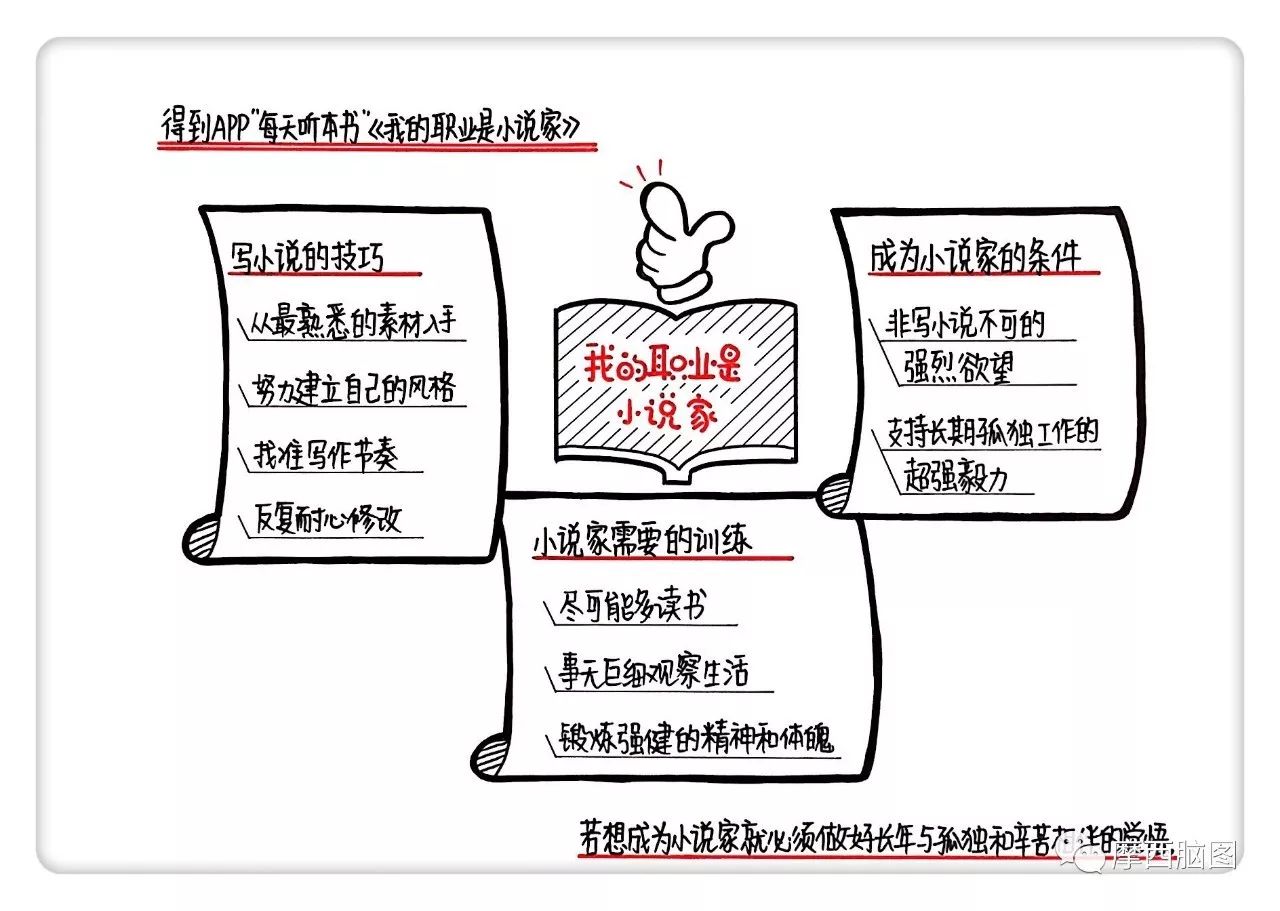 得到APP"每天听本书"《我的职业是小说家》
写小说的技巧
从最熟悉的素材入手
努力建立自己的风格
找准写作节奏
反复耐心修改
我的职业是
小说家
成为小说家的条件
非写小说不可的
强烈欲望
支持长期孤独工作的
超强毅力
小说家需要的训练
尽可能多读书
事无巨细观察生活
锻炼强健的精神和体魄
若想成为小说家就必须做好长年与孤独和辛苦相伴的觉悟
摩西脑图